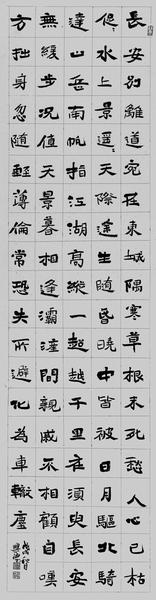 長安別離道宛在東城隅寒草根未死愁人心已枯
促々水上景遥々天際途生隨昏晚中皆被日月驅北騎
達山岳南帆指江湖高縱一超越千里在須臾長安
無緩步況值天景暮相逢灞滻間親戚不相顧自嘆
方拙身忽隨輕薄倫常恐失所避化為車轍塵